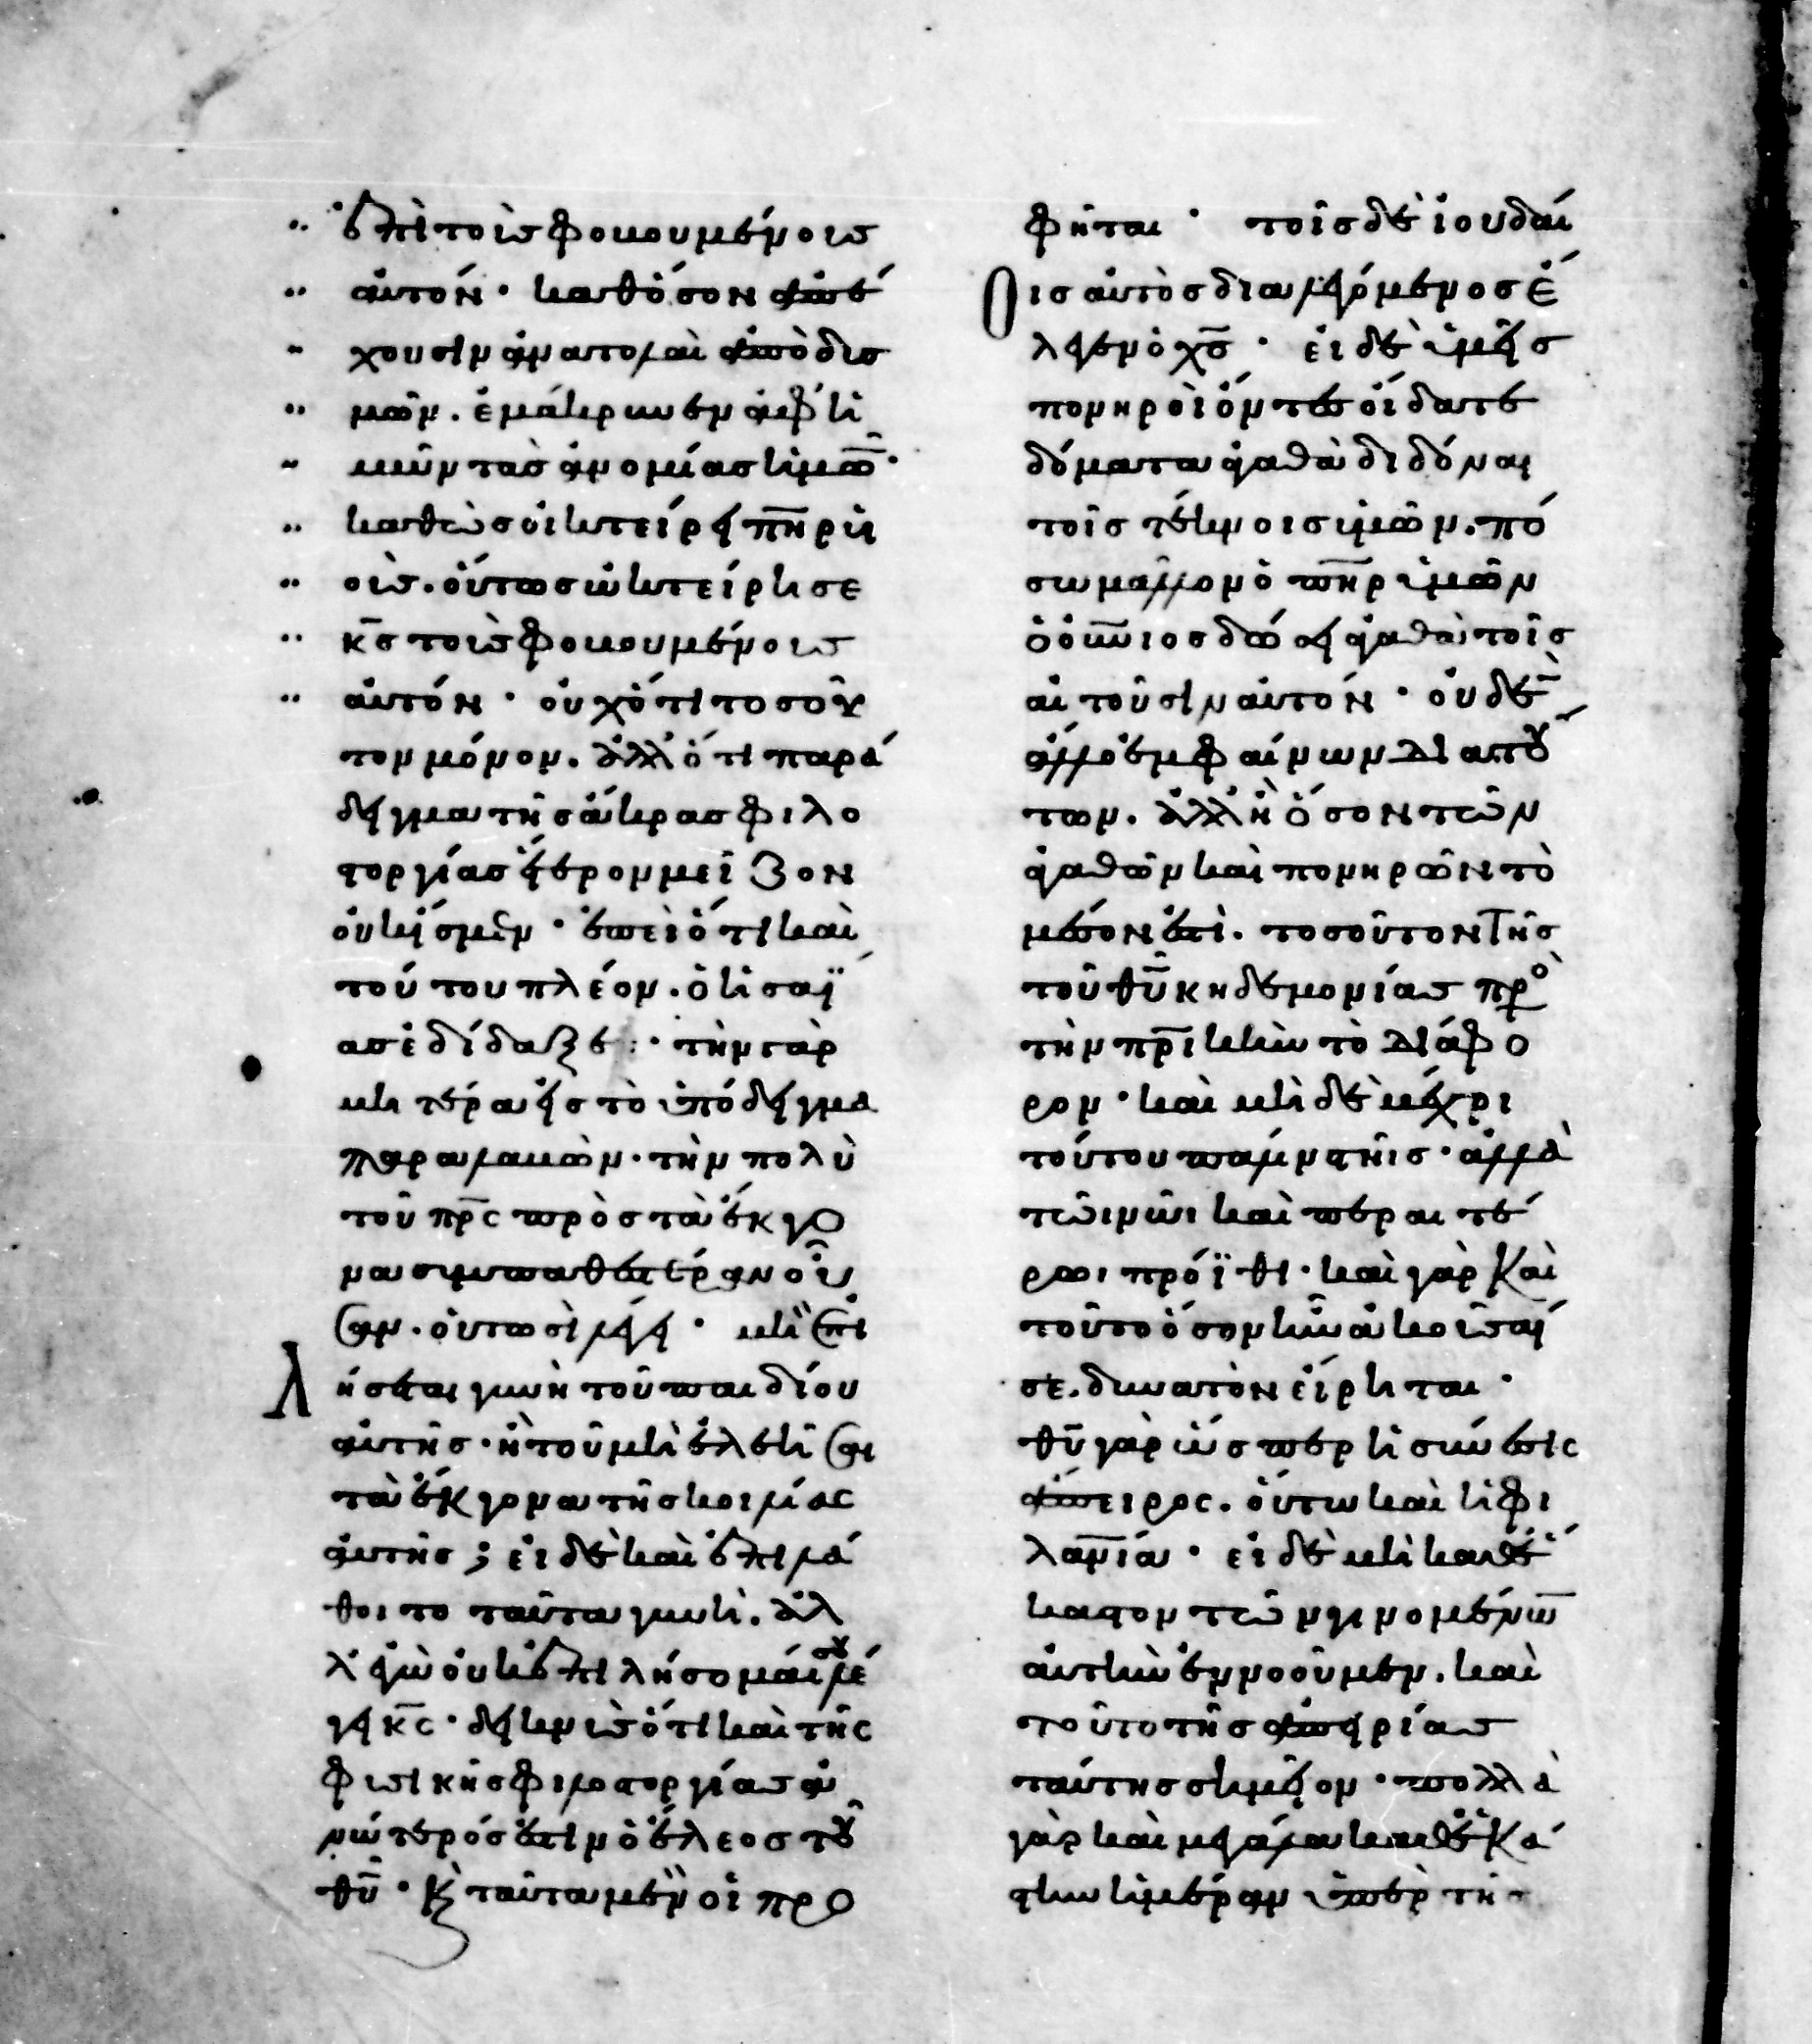 ἐπὶ τοὺς φοβουμένους
αὐτόν· καθόσον ἀπέ
χουσιν ἀνατολαὶ ἀπὸ δυσ
μῶν. ἐμάκρυνεν ἀφ' ἡ
μῶν τὰς ἀνομίας ἡμῶ·
καθὼς οἰκτείρει πηρ υἱ
οὺς. οὕτως ὠκτείρησε
κς τοὺς φοβουμένους
αὐτόν· οὐχ ὅτι τοσοῦ
τον μόνον. ἀλλ' ὅτι παρά
δειγμα τῆς ἄκρας φιλο
στοργίας ἕτερον μεῖζον
οὐκ ἴσμεν· ἐπεὶ ὅτι καὶ
τούτου πλέον. ὁ ἡσαΐ
ας ἐδίδαξε· τὴν γὰρ
μητέρα εἰς τὸ ὑπόδειγμα
παραλαβὼν· τὴν πολὺ
τοῦ πρς πρὸς τὰ ἔκγο
να συμπαθεστέραν οὖ
σαν. οὑτωσὶ λέγει· μὴ ἐπι
λήσεται γυνὴ τοῦ παιδίου
αὐτῆς· ἢ τοῦ μὴ ἐλεῆσαι
τὰ ἔκγονα τῆς κοιλίας
αὐτῆς; εἰ δὲ καὶ ἐπιλά
θοιτο ταῦτα γυνὴ. ἀλ
λ' ἐγὼ οὐκ ἐπιλήσομαί σου λέ
γει κς· δεικνὺς ὅτι καὶ τῆς
φυσικῆς φιλοστοργίας ἀ
νώτερός ἐστιν ὁ ἔλεος τοῦ
θυ· κὶ ταῦτα μὲν οἱ προ
φῆται· τοῖς δὲ ἰουδαί
οις αὐτὸς διαλεγόμενος ἔ
λεγεν ὁ χς· εἰ δὲ ὑμεῖς
πονηροὶ ὄντες οἴδατε
δόματα ἀγαθὰ διδόναι
τοῖς τέκνοις ὑμῶν. πό
σω μᾶλλον ὁ πηρ ὑμῶν
ὁ οὐνιος δώσει ἀγαθὰ τοῖς
αἰτοῦσιν αὐτόν· οὐδὲ
ἄλλο ἐμφαίνων διὰ τού
των. ἀλλ' ἢ ὅσον τῶν
ἀγαθῶν καὶ πονηρῶν τὸ
μέσον ἐστὶ. τοσοῦτον τῆς
τοῦ θυ κηδεμονίας πρὸ
τὴν πρικὴν τὸ διάφο
ρον· καὶ μὴ δὲ μέχρι
τούτου πάλιν στῆις· ἀλλὰ
τῶι νῶι καὶ περαιτέ
ρωι πρόϊθι· καὶ γὰρ καὶ
τοῦτο ὅσον ἦν ἀκοῦσαί
σε. δυνατὸν εἴρηται·
θυ γὰρ ὥσπερ ἡ σύνεσις
ἄπειρος. οὕτω καὶ ἡ φι
λανία· εἰ δὲ μὴ καθέ
καστον τῶν γινομένω
αὐτὴν ἐννοοῦμεν. καὶ
τοῦτο τῆς ἀπειρίας
ταύτης σημεῖον· πολλὰ
γὰρ καὶ μεγάλα καθ' ἑκά
στην ἡμέραν ὑπὲρ τῆς